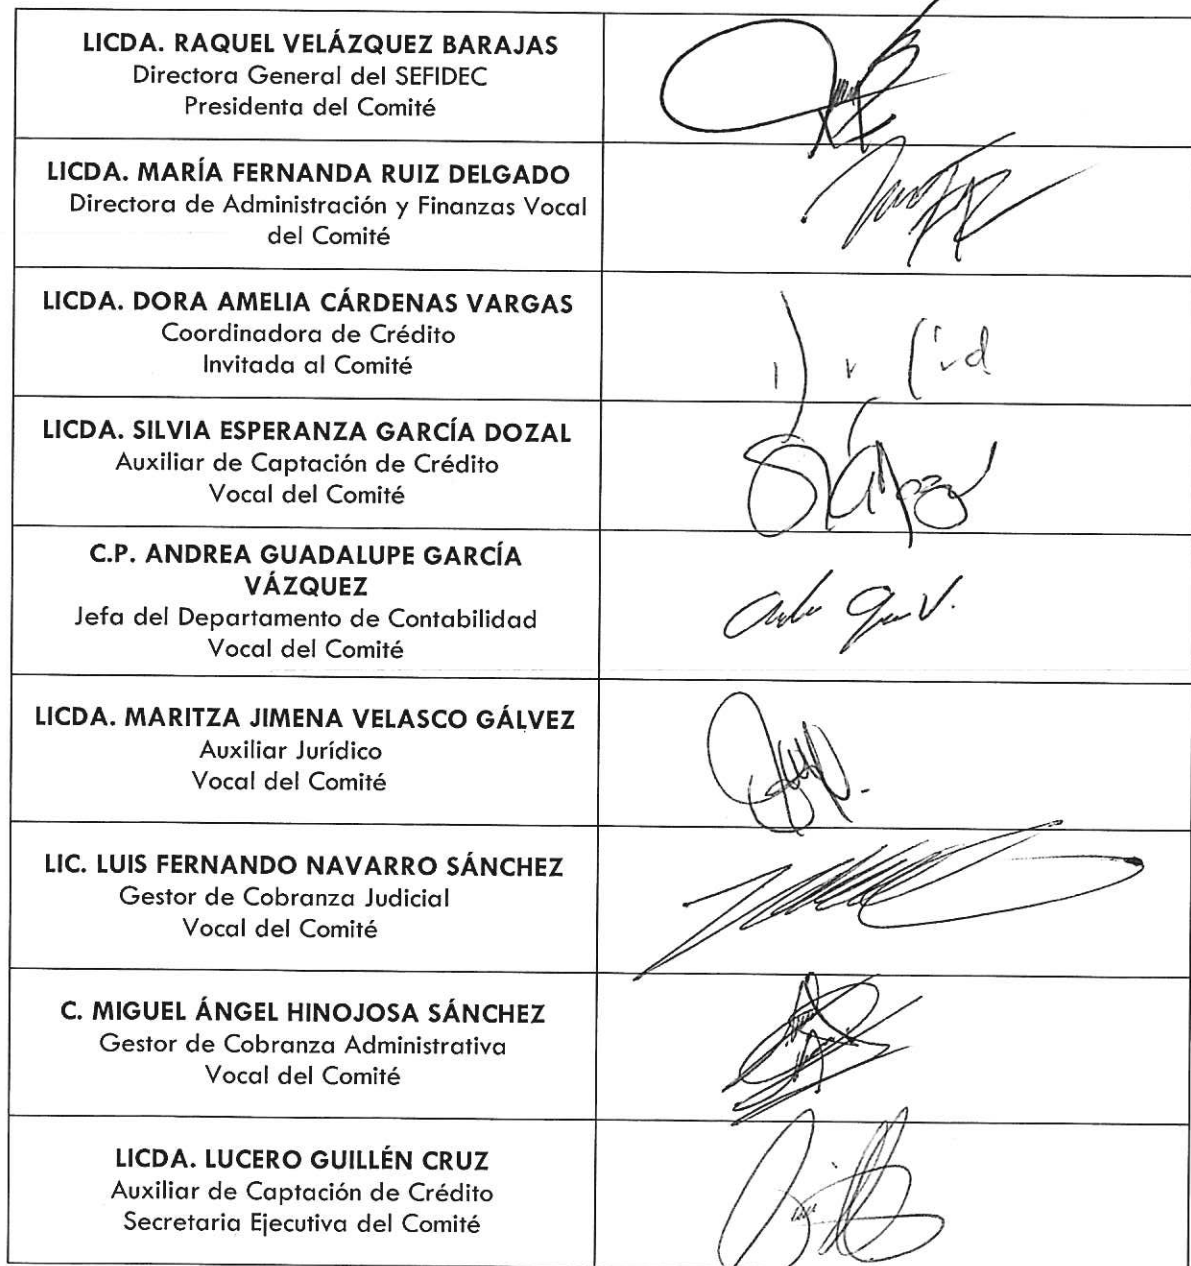 LICDA. RAQUEL VELÁZQUEZ BARAJAS
Directora General del SEFIDEC
Presidenta del Comité
LICDA. MARÍA FERNANDA RUIZ DELGADO
Directora de Administración y Finanzas Vocal
del Comité
LICDA. DORA AMELIA CÁRDENAS VARGAS
Coordinadora de Crédito
Invitada al Comité
LICDA. SILVIA ESPERANZA GARCÍA DOZAL
Auxiliar de Captación de Crédito
Vocal del Comité
C.P. ANDREA GUADALUPE GARCÍA
VÁZQUEZ
Jefa del Departamento de Contabilidad
Vocal del Comité
LICDA. MARITZA JIMENA VELASCO GÁLVEZ
Auxiliar Jurídico
Vocal del Comité
LIC. LUIS FERNANDO NAVARRO SÁNCHEZ
Gestor de Cobranza Judicial
Vocal del Comité
C. MIGUEL ÁNGEL HINOJOSA SÁNCHEZ
Gestor de Cobranza Administrativa
Vocal del Comité
LICDA. LUCERO GUILLÉN CRUZ
Auxiliar de Captación de Crédito
Secretaria Ejecutiva del Comité